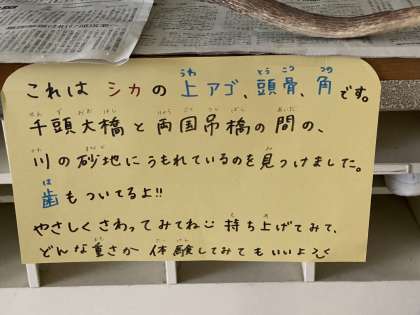 これは シカの 上アゴ、頭骨、角です。
千頭大橋と両国吊橋の間の、
川の砂地にうもれているのを見つけました。
歯もついてるよ!!
やさしくさわってみてね 持ち上げてみて、
どんな重さか 体験してみてもいいよ